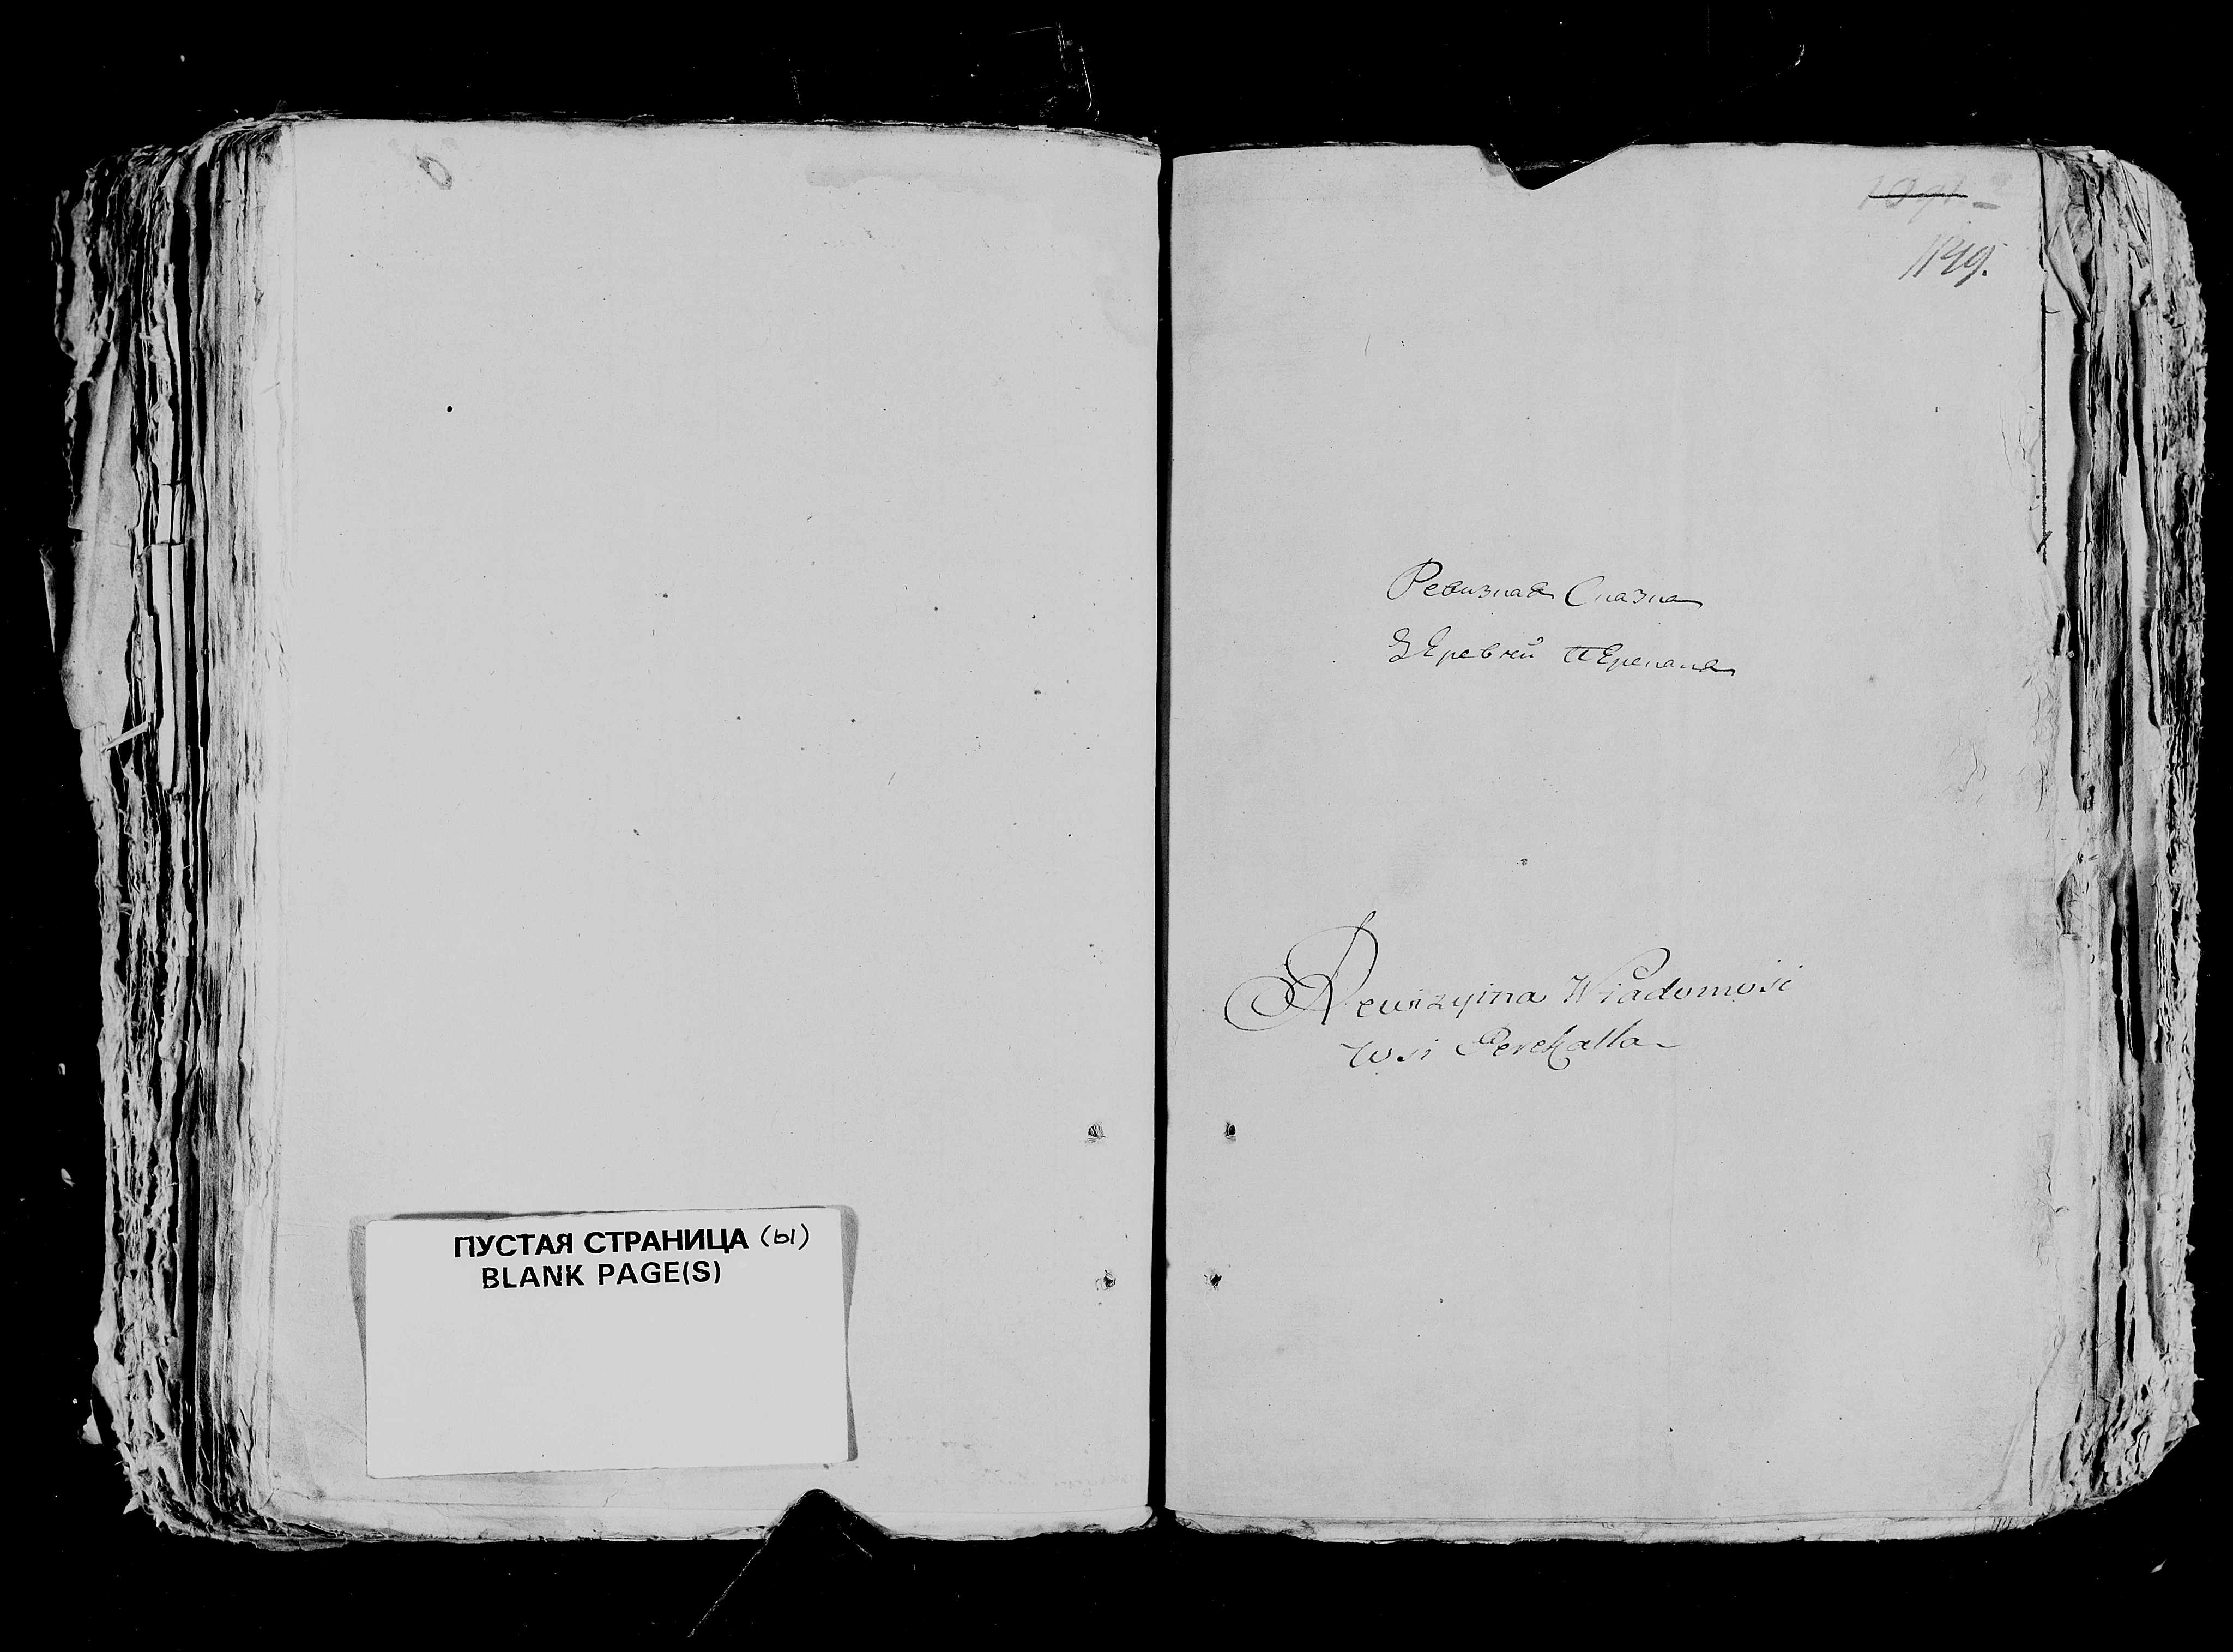 ПУСТАЯ СТРАНИЦА (ы)
BLANK PAGE(S)
1149.
Ревизная Сказка
Деревни Перекала
Rewizyina Wiadomosc
Wsi Perekalla